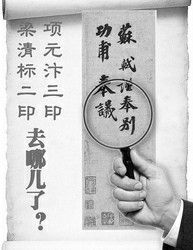 项元汴三印
梁清标二印
去哪儿了?
蘇軾謹奉別
功甫奉議